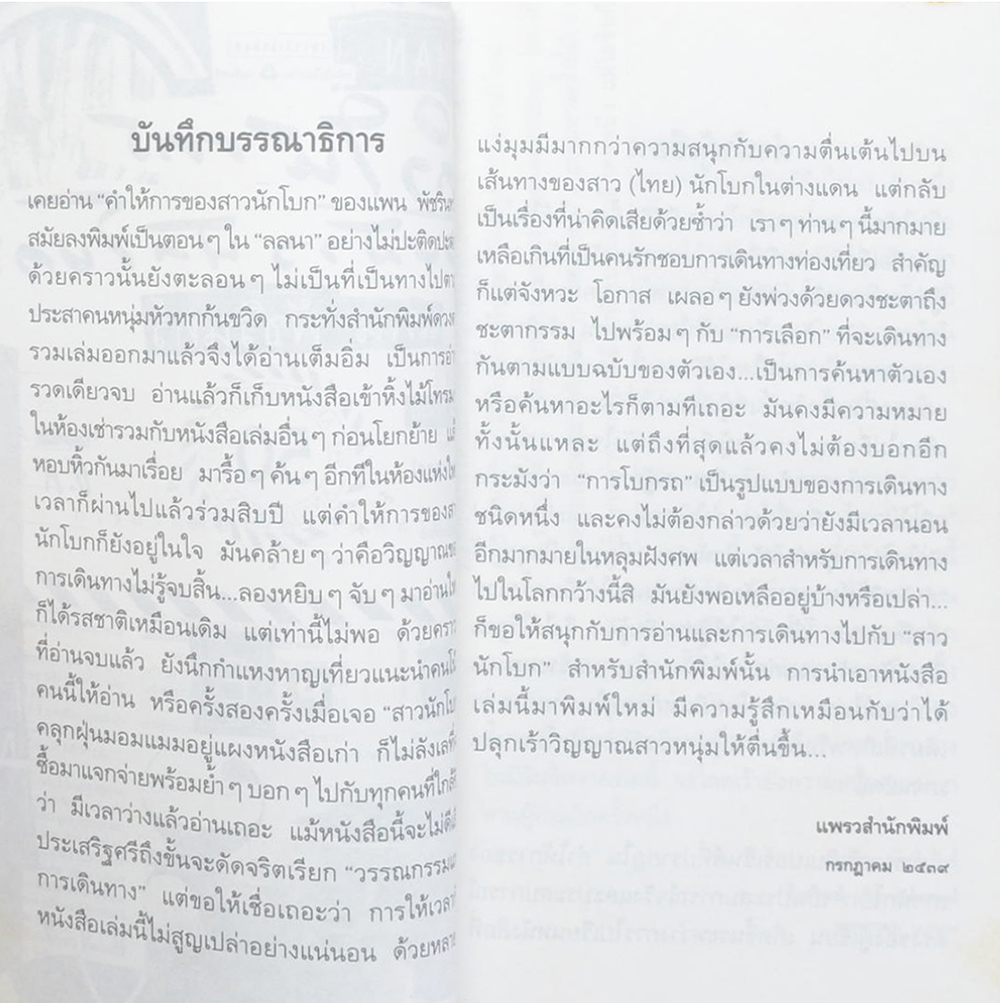 บันทึกบรรณาธิการ
เคยอ่าน “คำให้การของสาวนักโบก” ของแพน
สมัยลงพิมพ์เป็นตอนๆ ใน “ลลนา” อย่างไม่ปะติด
ด้วยคราวนั้นยังตะลอนๆ ไม่เป็นที่เป็นทางไป
ประสาคนหนุ่มหัวหกก้นขวิด กระทั่งสำนักพิมพ์
รวมเล่มออกมาแล้วจึงได้อ่านเต็มอิ่ม เป็นการ
รวดเดียวจบ อ่านแล้วก็เก็บหนังสือเข้าหิ้งไม้
ในห้องเช่ารวมกับหนังสือเล่มอื่นๆ ก่อนโยกย้าย
หอบหิ้วกันมาเรื่อย มารื้อๆ ค้นๆ อีกทีในห้องแห่ง
เวลาก็ผ่านไปแล้วร่วมสิบปี แต่คำให้การของ
นักโบกก็ยังอยู่ในใจ มันคล้ายๆ ว่าคือวิญญาณ
การเดินทางไม่รู้จบสิ้น...ลองหยิบๆ จับๆ มาอ่าน
ก็ได้รสชาติเหมือนเดิม แต่เท่านี้ไม่พอ ด้วย
ที่อ่านจบแล้ว ยังนึกกำแหงหาญเที่ยวแนะนำคน
คนนี้ให้อ่าน หรือครั้งสองครั้งเมื่อเจอ “สาวนัก
คลุกฝุ่นมอมแมมอยู่แผงหนังสือเก่า ก็ไม่ลังเล
ซื้อมาแจกจ่ายพร้อมย้ำๆ บอกๆ ไปกับทุกคนที่
ว่า มีเวลาว่างแล้วอ่านเถอะ แม้หนังสือนี้จะไม่
ประเสริฐศรีถึงขั้นจะดัดจริตเรียก “วรรณกรรม
การเดินทาง” แต่ขอให้เชื่อเถอะว่า การให้เวลา
หนังสือเล่มนี้ไม่สูญเปล่าอย่างแน่นอน ด้วย
แง่มุมมีมากกว่าความสนุกกับความตื่นเต้นไปบน
เส้นทางของสาว (ไทย) นักโบกในต่างแดน แต่กลับ
เป็นเรื่องที่น่าคิดเสียด้วยซ้ำว่า เราๆ ท่านๆ นี้มากมาย
เหลือเกินที่เป็นคนรักชอบการเดินทางท่องเที่ยว สำคัญ
ก็แต่จังหวะ โอกาส เผลอๆ ยังพ่วงด้วยดวงชะตาถึง
ชะตากรรม ไปพร้อมๆ กับ “การเลือก” ที่จะเดินทาง
กันตามแบบฉบับของตัวเอง...เป็นการค้นหาตัวเอง
หรือค้นหาอะไรก็ตามทีเถอะ มันคงมีความหมาย
ทั้งนั้นแหละ แต่ถึงที่สุดแล้วคงไม่ต้องบอกอีก
กระมังว่า “การโบกรถ” เป็นรูปแบบของการเดินทาง
ชนิดหนึ่ง และคงไม่ต้องกล่าวด้วยว่ายังมีเวลานอน
อีกมากมายในหลุมฝังศพ แต่เวลาสำหรับการเดินทาง
ไปในโลกกว้างนี้สิ มันยังพอเหลืออยู่บ้างหรือเปล่า...
ก็ขอให้สนุกกับการอ่านและการเดินทางไปกับ “สาว
นักโบก” สำหรับสำนักพิมพ์นั้น การนำเอาหนังสือ
เล่มนี้มาพิมพ์ใหม่ มีความรู้สึกเหมือนกับว่าได้
ปลุกเร้าวิญญาณสาวหนุ่มให้ตื่นขึ้น...
แพรวสำนักพิมพ์
กรกฎาคม ๒๕๓๙